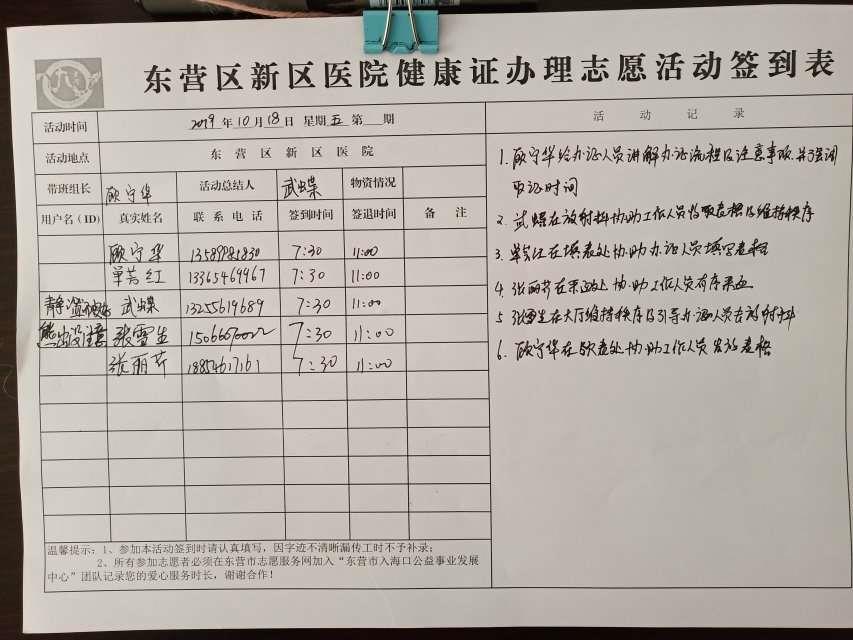 东营区新区医院健康证办理志愿活动签到表
活动时间 2019年10月18日 星期五 第 期
活动地点 东营区新区医院
带班组长 顾守华 活动总结人 武蝶 物资情况
用户名(ID) 真实姓名 联系电话 签到时间 签退时间 备注
顾守华 13589981830 7:30 11:00
单芳红 13365469967 7:30 11:00
武蝶 13255619689 7:30 11:00
熊出没注意 张雪生 7:30 11:00
张丽芹 18854617161 7:30 11:00
温馨提示:1、参加本活动签到时请认真填写,因字迹不清晰漏传工时不予补录;
2、所有参加志愿者必须在东营市志愿服务网加入“东营市入海口公益事业发展
中心”团队记录您的爱心服务时长,谢谢合作!
活动记录
1.顾守华给办证人员讲解办证流程及注意事项,并强调
取证时间
2.武蝶在放射科协助工作人员收取表格及维持秩序
3.单芳红在填表处协助办证人员填写表格
4.张丽芹在采血处协助工作人员有序采血
5 张雪生在大厅维持秩序及引导办证人员去放射科
6.顾守华在取表处协助工作人员发放表格